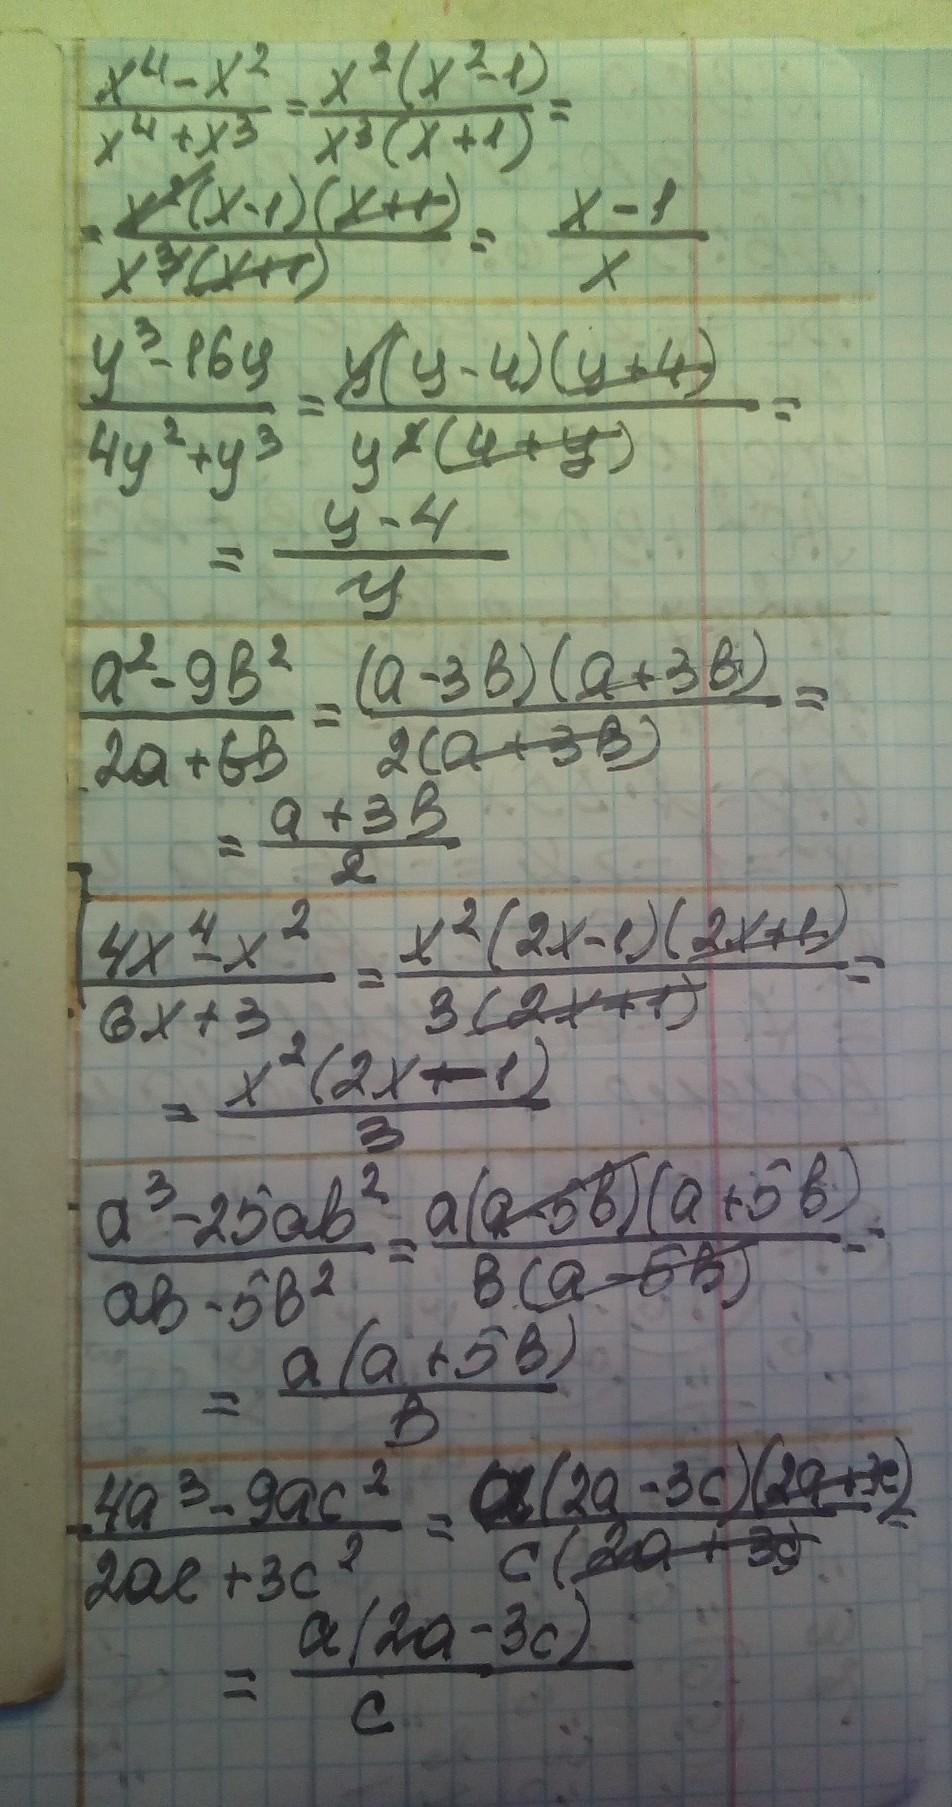 (x⁴-x²)/(x⁴+x³) = (x²(x²-1))/(x³(x+1)) =
= (x²(x-1)(x+1))/(x³(x+1)) = (x-1)/x
(y³-16y)/(4y²+y³) = (y(y-4)(y+4))/(y²(4+y)) =
= (y-4)/y
(a²-9b²)/(2a+6b) = ((a-3b)(a+3b))/(2(a+3b)) =
= (a+3b)/2
(4x⁴-x²)/(6x+3) = (x²(2x-1)(2x+1))/(3(2x+1)) =
= (x²(2x-1))/3
(a³-25ab²)/(ab-5b²) = (a(a-5b)(a+5b))/(b(a-5b)) =
= (a(a+5b))/b
(4a³-9ac²)/(2ac+3c²) = (a(2a-3c)(2a+3c))/(c(2a+3c)) =
= (a(2a-3c))/c